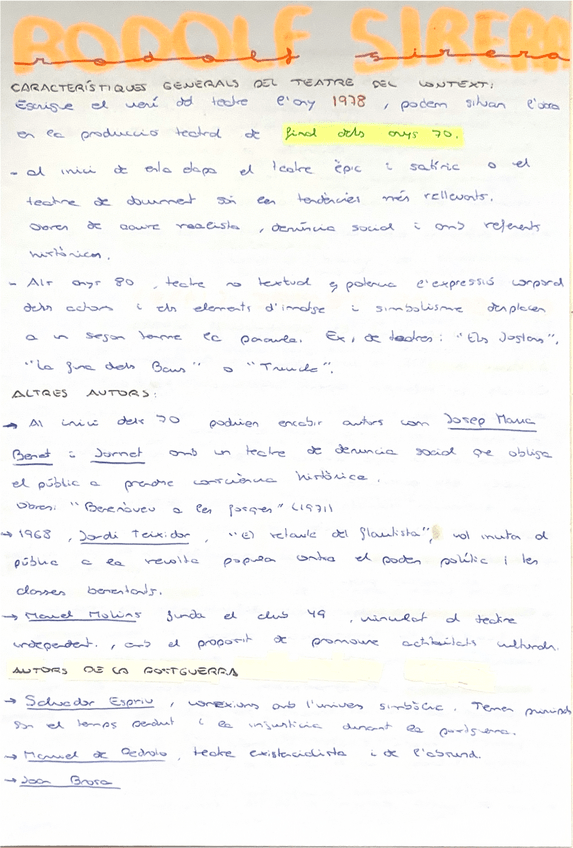 RODOLF SIRERA
rodolf sirera
CARACTERÍSTIQUES GENERALS DEL TEATRE DEL CONTEXT:
Escrigue el verí del teatre l'any 1978, podem situar l'obra
en la producció teatral de final dels anys 70.
- al inici de esta etapa el teatre èpic i satíric o el
teatre de document són les tendències més rellevants.
Obres de caire realista, denúncia social i amb referents
històrics.
- Als anys 80, teatre no textual q potencia l'expressió corporal
dels actors i els elements d'imatge i simbolisme desplacen
a un segon terme la paraula. Ex, de teatres: "Els Joglars",
"La fura dels Baus" o "Tricicle".
ALTRES AUTORS:
→ Al inici dels 70 podrien encabir autors com Josep Maria
Benet i Jornet amb un teatre de denuncia social que obliga
el públic a prendre consciència històrica.
Obres: "Berenàveu a les fosques" (1971)
→ 1968, Jordi Teixidor, "El retaule del flautista", vol incitar al
públic a la revolta popular contra el poder polític i les
classes benestants.
→ Manuel Molins funda el club 49, vinculat al teatre
independent., amb el proposit de promoure activitats culturals.
AUTORS DE LA POSTGUERRA
→ Salvador Espriu, connexions amb l'univers simbòlic. Temes principals
són el temps perdut i la injustícia durant la postguerra.
→ Manuel de Pedrolo, teatre existencialista i de l'absurd.
→ Joan Brosa